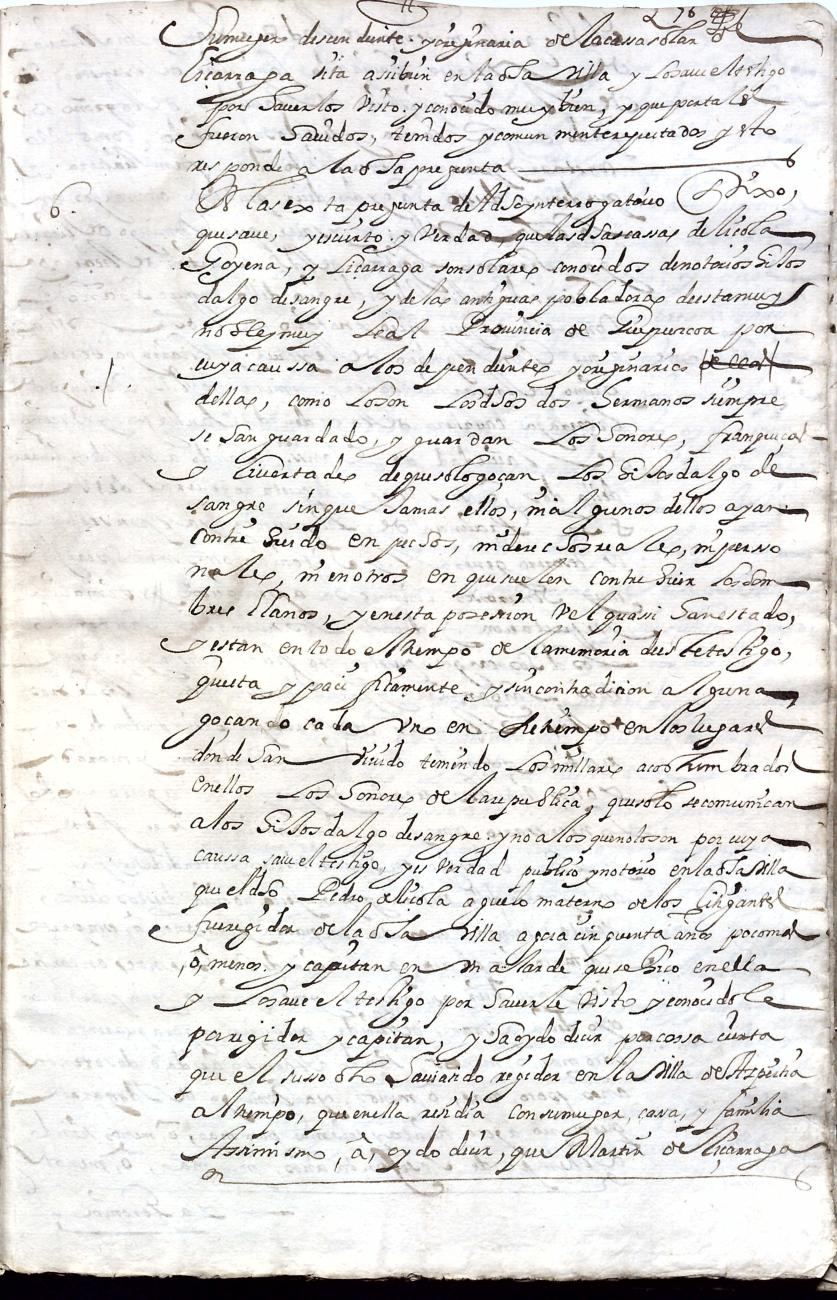 276
Su muger descendiente y originaria de la cassa solar de
Liçarraga sita assibien en la dha Villa y lo saue el testigo
por hauerlos Visto y conocido muy bien, y que por tales
fueron hauidos, tenidos y comunmente reputados y esto
responde a la dha pregunta
6. A la sexta pregunta del dho ynterrogatorio Dixo,
que saue, y es cierto y Verdad, que las dhas cassas de Elicola
Goyena, y Liçarraga son solares conocidos de notorios hijos
dalgo de sangre, y de las antiguas pobladoras de esta muy
noble y muy leal Prouincia de Guipuzcoa por
cuya caussa a los dependientes y originarios
dellas, como lo son los dhos dos hermanos siempre
se han guardado, y guardan los honores, franqueças
y liuertades de que solo goçan los hijos dalgo de
sangre sin que Jamas ellos, ni algunos dellos ayan
contribuido en pechos, ni derechos reales, ni perso
nales, ni en otros en que suelen contribuir los hom
bres llanos, y en esta posesion Vel quassi han estado,
y estan en todo el tiempo de la memoria de este testigo,
quieta y pacificamente y sin contradicion alguna
goçando cada Vno en su tiempo en los lugares
donde han Viuido teniendo los millares acostumbrados
en ellos los honores de la republica, que solo se comunican
a los hijos dalgo de sangre y no a los que no lo son por cuya
caussa saue el testigo, y es Verdad publico y notorio en la dha Villa
que el dho Pedro de Elicola aguelo materno de los litigantes
fue regidor de la dha Villa agora cinquenta años poco mas
ó, menos y capitan en Vn alarde que se hico en ella
y lo saue el testigo por hauerle Visto y conocidole
por regidor y capitan, y ha oydo decir por cossa cierta
que el susso dho hauiendo regidor en la Villa de Azpeitia
al tiempo, que en ella residia con su muger, cassa, y familia
Assimismo, á, oydo decir, que Martin de Liçarraga